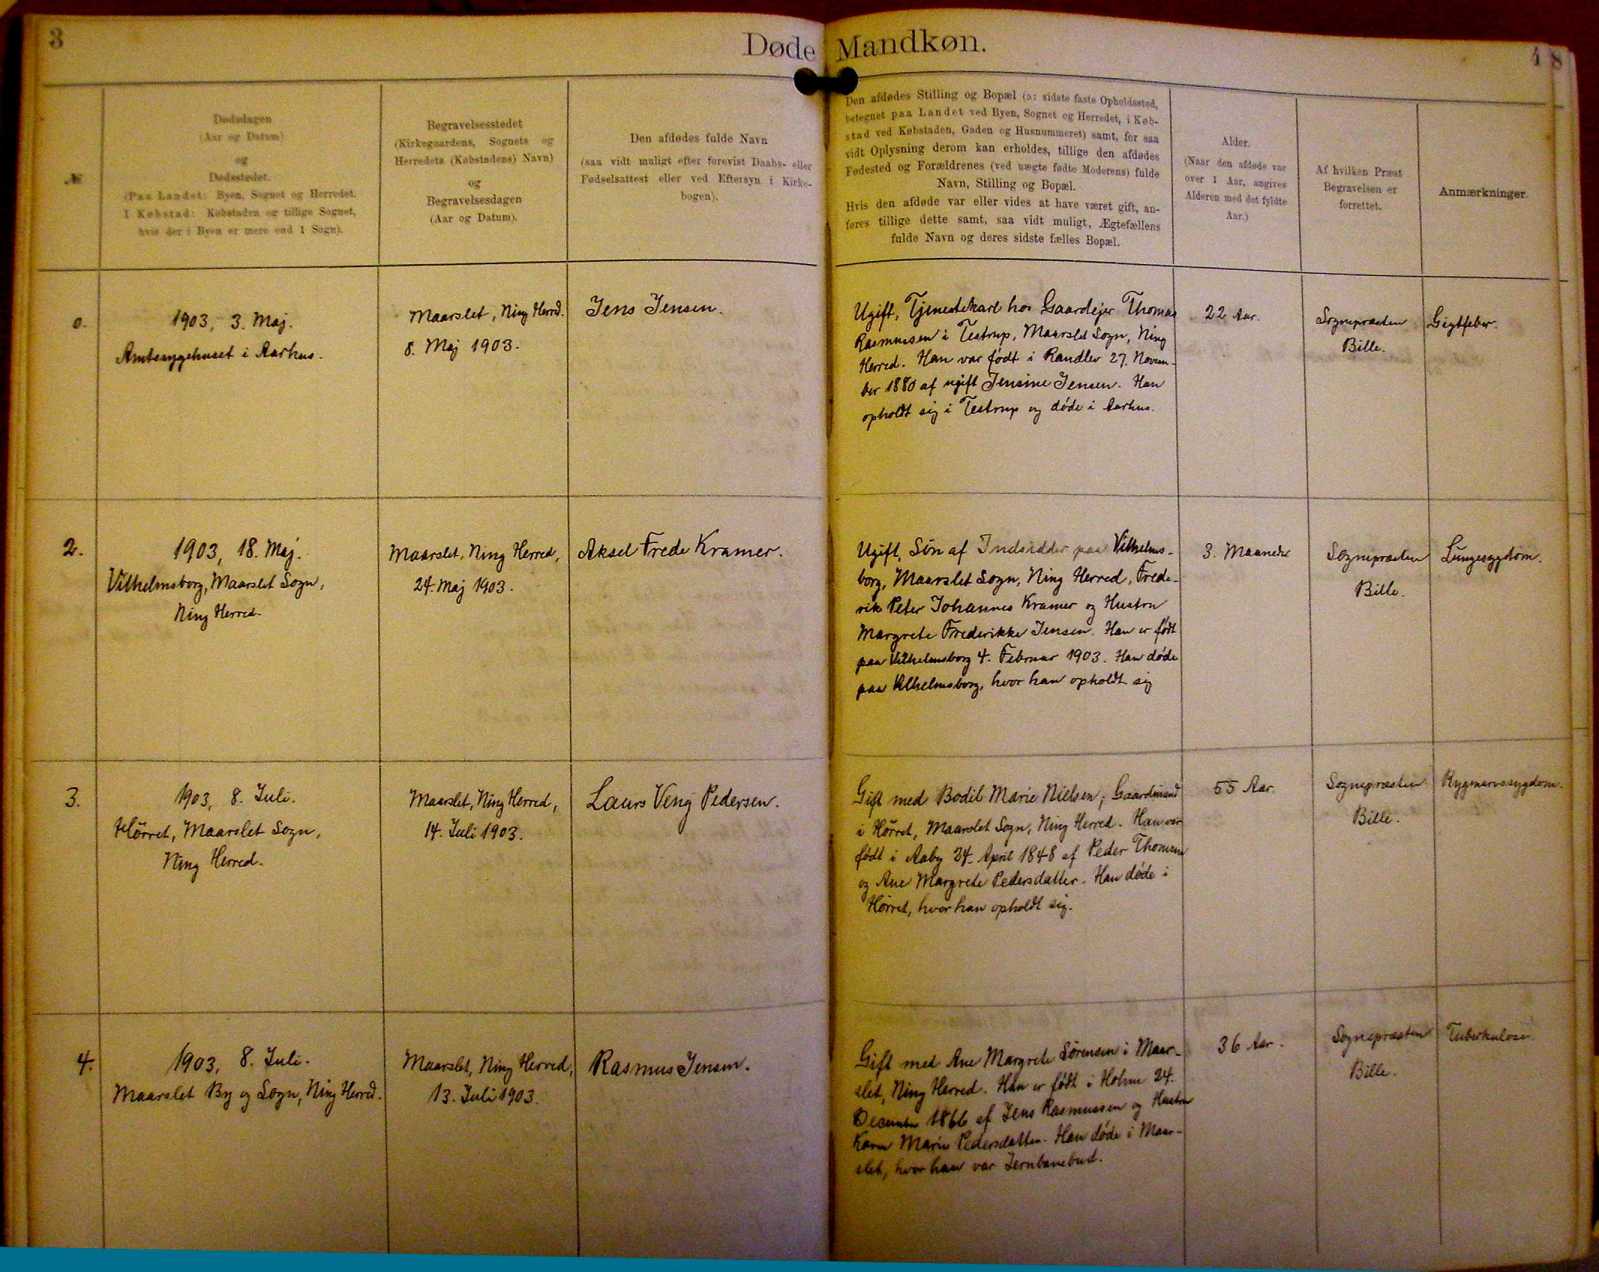 3
Døde Mandkøn.
4
8
№
Dødsdagen
(Aar og Datum)
og
Dødsstedet.
(Paa Landet: Byen, Sognet og Herredet.
I Købstad: Købstaden og tillige Sognet,
hvis der i Byen er mere end 1 Sogn).
Begravelsesstedet
(Kirkegaardens, Sognets og
Herredets (Købstadens) Navn)
og
Begravelsesdagen
(Aar og Datum).
Den afdødes fulde Navn
(saa vidt muligt efter forevist Daabs- eller
Fødselsattest eller ved Eftersyn i Kirke-
bogen).
Den afdødes Stilling og Bopæl (ɔ: sidste faste Opholdssted,
betegnet paa Landet ved Byen, Sognet og Herredet, i Køb-
stad ved Købstaden, Gaden og Husnummeret) samt, for saa
vidt Oplysning derom kan erholdes, tillige den afdødes
Fødested og Forældrenes (ved uægte fødte Moderens) fulde
Navn, Stilling og Bopæl.
Hvis den afdøde var eller vides at have været gift, an-
føres tillige dette samt, saa vidt muligt, Ægtefællens
fulde Navn og deres sidste fælles Bopæl.
Alder.
(Naar den afdøde var
over 1 Aar, angives
Alderen med det fyldte
Aar.)
Af hvilken Præst
Begravelsen er
forrettet.
Anmærkninger.
0.
1903, 3. Maj.
Amtssygehuset i Aarhus.
Maarslet, Ning Herred.
8. Maj 1903.
Jens Jensen.
Ugift, Tjenestekarl hos Gaardejer Thomas
Rasmussen i Testrup, Maarslet Sogn, Ning
Herred. Han var født i Randlev 27. Novem-
ber 1880 af ugift Jensine Jensen. Han
opholdt sig i Testrup og døde i Aarhus.
22 Aar.
Sognepræsten
Bille.
Gigtfeber.
2.
1903, 18. Maj.
Vilhelmsborg, Maarslet Sogn,
Ning Herred.
Maarslet, Ning Herred,
24. Maj 1903.
Aksel Frede Kramer.
Ugift, Søn af Indsidder paa Vilhelms-
borg, Maarslet Sogn, Ning Herred, Frede-
rik Peter Johannes Kramer og Hustru
Margrete Frederikke Jensen. Han er født
paa Vilhelmsborg 4. Februar 1903. Han døde
paa Vilhelmsborg, hvor han opholdt sig
3. Maaneder
Sognepræsten
Bille.
Lungesygdom.
3.
1903, 8. Juli.
Hørret, Maarslet Sogn,
Ning Herred.
Maarslet, Ning Herred,
14. Juli 1903.
Laurs Veng Pedersen.
Gift med Bodil Marie Nielsen, Gaardmand
i Hørret, Maarslet Sogn, Ning Herred. Han var
født i Aaby 24. April 1848 af Peder Thomsen
og Ane Margrete Pedersdatter. Han døde i
Hørret, hvor han opholdt sig.
55 Aar.
Sognepræsten
Bille.
Rygmarvssygdom.
4.
1903, 8. Juli.
Maarslet By og Sogn, Ning Herred.
Maarslet, Ning Herred,
13. Juli 1903.
Rasmus Jensen.
Gift med Ane Margrete Sørensen i Maar-
slet, Ning Herred. Han er født i Holme 24.
December 1866 af Jens Rasmussen og Hustru
Karen Marie Pedersdatter. Han døde i Maar-
slet, hvor han var Jernbanebud.
36 Aar.
Sognepræsten
Bille.
Tuberkulose